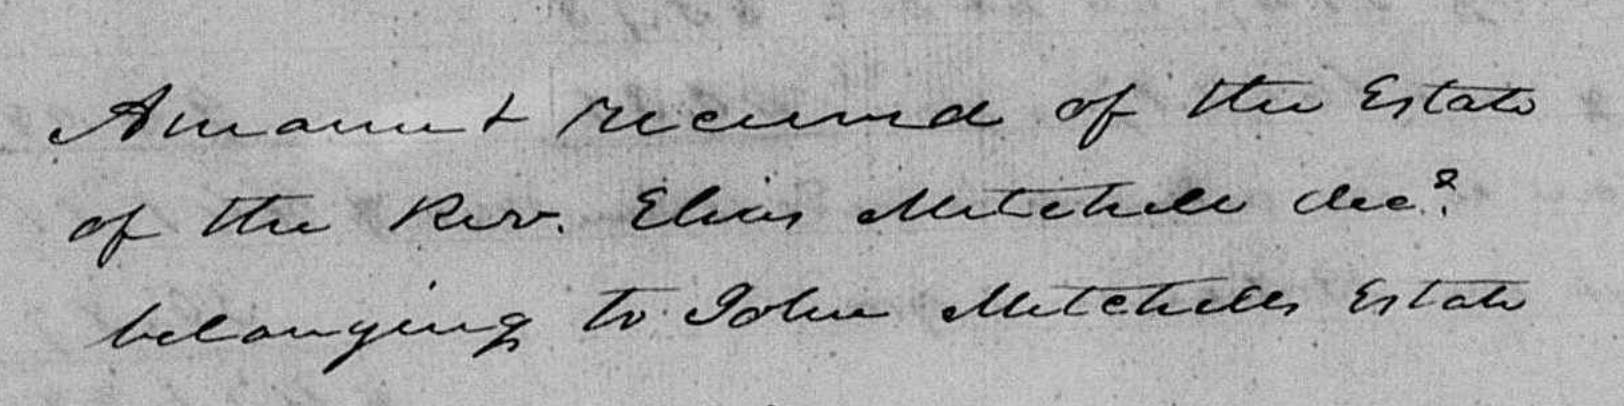 Amount received of the Estate
of the Rev. Elias Mitchell decd.
belonging to John Mitchells Estate